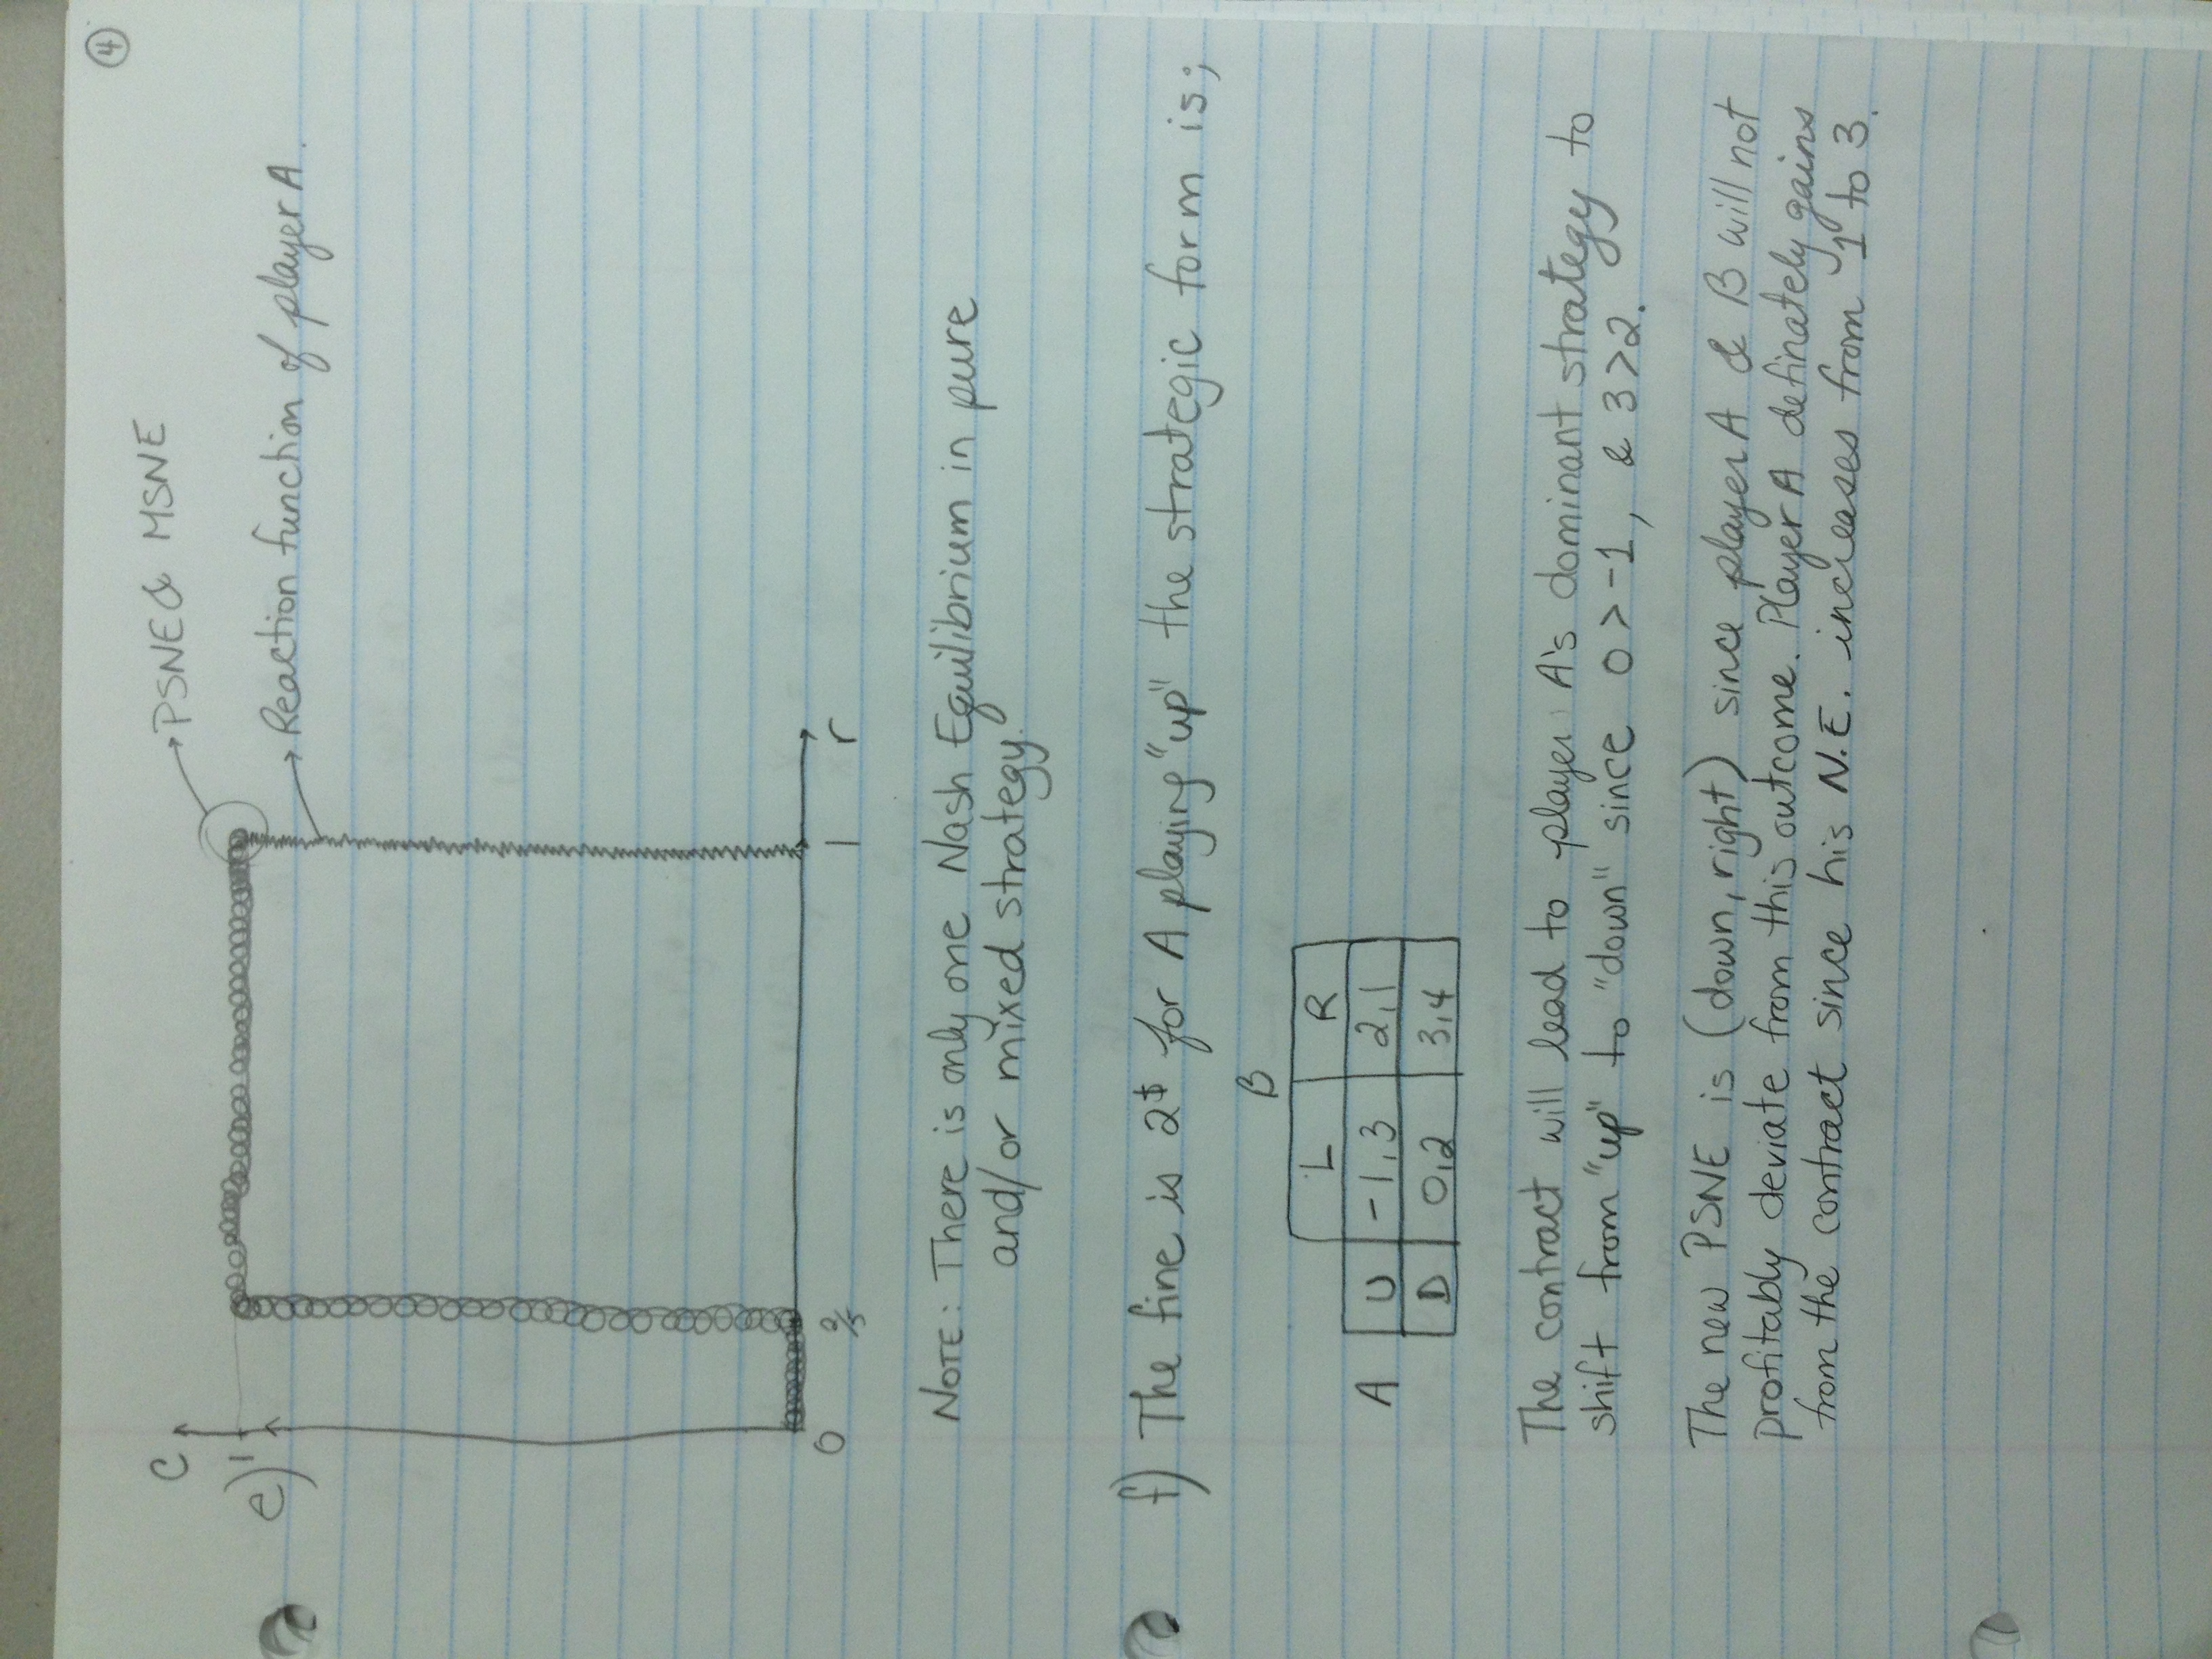 ④
C
→PSNE & MSNE
e) 1
→ Reaction function of player A.
0 2/5 1 r
NOTE: There is only one Nash Equilibrium in pure
and/or mixed strategy.
f) The fine is 2$ for A playing "up" the strategic form is;
B
L R
A U -1,3 2,1
D 0,2 3,4
The contract will lead to player A's dominant strategy to
shift from "up" to "down" since 0 > -1, & 3 > 2.
The new PSNE is (down, right) since player A & B will not
profitably deviate from this outcome. Player A definately gains
from the contract since his N.E. increases from 1 to 3.